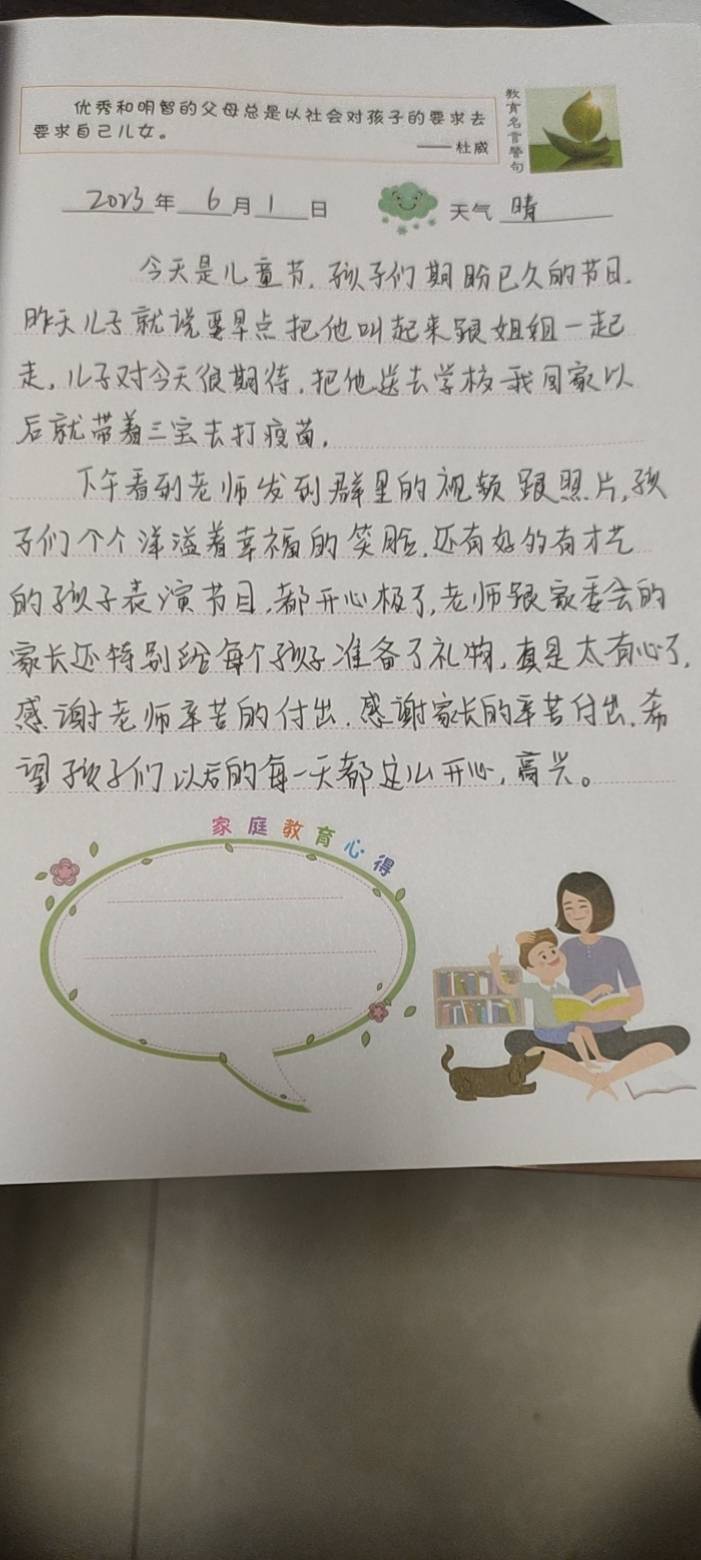 优秀和明智的父母总是以社会对孩子的要求去
要求自己儿女。
——杜威
教育名言警句
2023年 6月1日
天气 晴
今天是儿童节,孩子们期盼已久的节日.
昨天儿子就说要早点把他叫起来跟姐姐一起
走,儿子对今天很期待,把他送去学校我回家以
后就带着三宝去打疫苗,
下午看到老师发到群里的视频跟照片,孩
子们个个洋溢着幸福的笑脸,还有好的有才艺
的孩子表演节目,都开心极了,老师跟家委会的
家长还特别给每个孩子准备了礼物,真是太有心了,
感谢老师辛苦的付出,感谢家长的辛苦付出,希
望孩子们以后的每一天都这么开心,高兴。
家庭教育心得